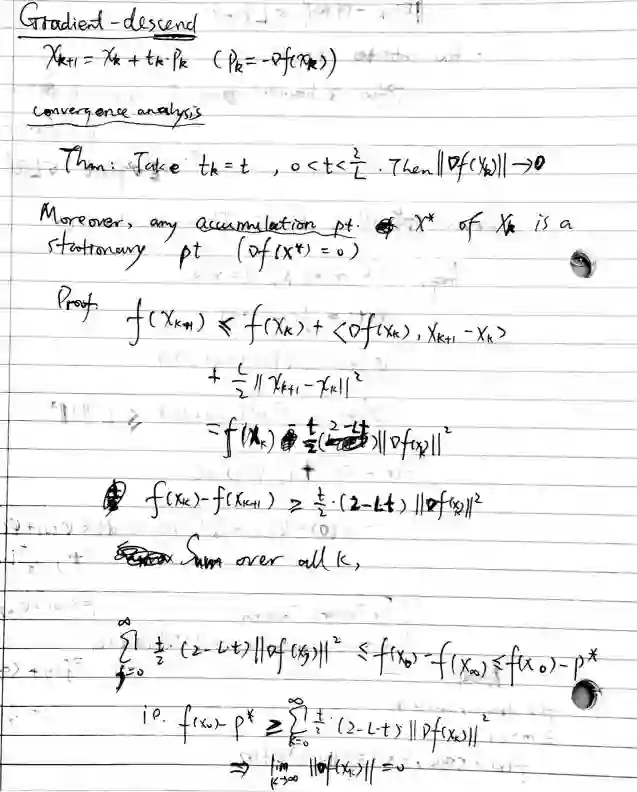 Gradient-descend
x_{k+1} = x_k + t_k·p_k (p_k = -∇f(x_k))
convergence analysis
Thm: Take t_k = t , 0 < t < 2/L . Then ||∇f(x_k)|| → 0
Moreover, any accumulation pt. x* of x_k is a
stationary pt (∇f(x*) = 0)
Proof.
f(x_{k+1}) ≤ f(x_k) + <∇f(x_k), x_{k+1} - x_k>
+ L/2 || x_{k+1} - x_k ||²
= f(x_k) - t/2 (2-Lt) ||∇f(x_k)||²
f(x_k) - f(x_{k+1}) ≥ t/2 · (2-Lt) ||∇f(x_k)||²
Sum over all k,
∑_{j=0}^∞ t/2 · (2-Lt) ||∇f(x_j)||² ≤ f(x_0) - f(x_∞) ≤ f(x_0) - p*
i.e. f(x_0) - p* ≥ ∑_{k=0}^∞ t/2 · (2-L·t) ||∇f(x_k)||²
⇒ lim_{k→∞} ||∇f(x_k)|| = 0